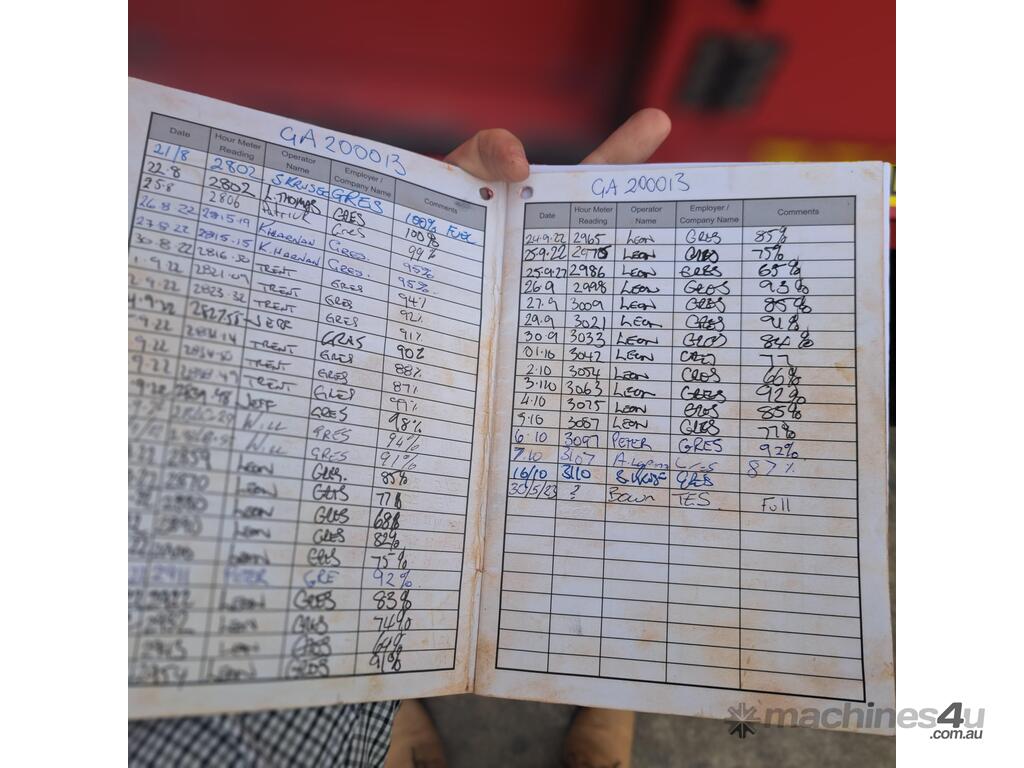 GA 200013
Date Hour Meter Reading Operator Name Employer / Company Name Comments
21/8 2802 GRES 100% FUEL
22.8 2802 L.THOMAS GRES 100%
25.8 2806 Patrick GRES 99%
26.8.22 2815.19 GRES. 95%
27.8.22 2815.15 GRES. 95%
30.8.22 2816.30 TRENT GRES 94%
1.9.22 2821.09 TRENT GRES 92%
2.9.22 2823.32 TRENT GRES 91%
GRES 90%
9.22 TRENT GRES 88%
9.22 TRENT GRES 87%
9.22 TRENT GLES
JEFF GRES 98%
WILL GRES 94%
WILL GRES 91%
2859 LEON GRES. 85%
2870 LEON GRES 77%
2880 LEON GRES
2890 LEON GRES 82%
LEON GRES 75%
2911 PETER GRE 92%
2922 LEON GRES 83%
2932 LEON GRES 74%
2945 LEON GRES 64%
2954 LEON GRES 91%
GA 200013
Date Hour Meter Reading Operator Name Employer / Company Name Comments
24.9.22 2965 LEON GRES 85%
25.9.22 2975 LEON GRES 75%
25.9.22 2986 LEON GRES 65%
26.9 2998 LEON GRES 93%
27.9 3009 LEON GRES 85%
29.9 3021 LEON GRES 91%
30.9 3033 LEON GRES 84%
01.10 3042 LEON GRES 77
2.10 3054 LEON GRES 66%
3.10 3063 LEON GRES 92%
4.10 3075 LEON GRES 85%
5.10 3087 LEON GRES 77%
6.10 3097 PETER GRES 92%
7.10 3107 Gres 87%
16/10 3110 GRES
30/5/23 ? TES Full
machines4u
.com.au